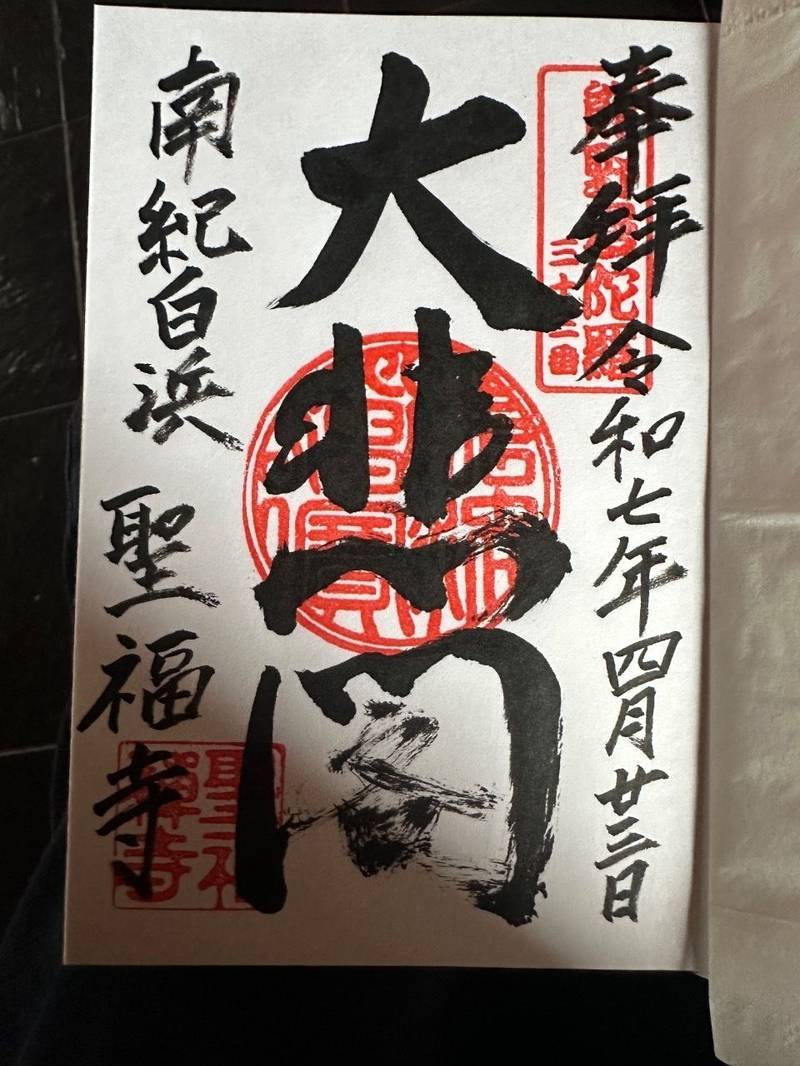 奉拜
令和七年四月廿三日
三十三番
大悲閣
南紀白浜
聖福寺